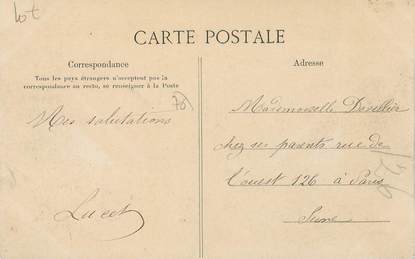 lot
CARTE POSTALE
Correspondance
Tous les pays étrangers n'acceptent pas la
correspondance au recto, se renseigner à la Poste
Mes salutations
Lucet
Adresse
Mademoiselle Devillier
chez ses parents rue de
l'ouest 126 à Paris
Seine